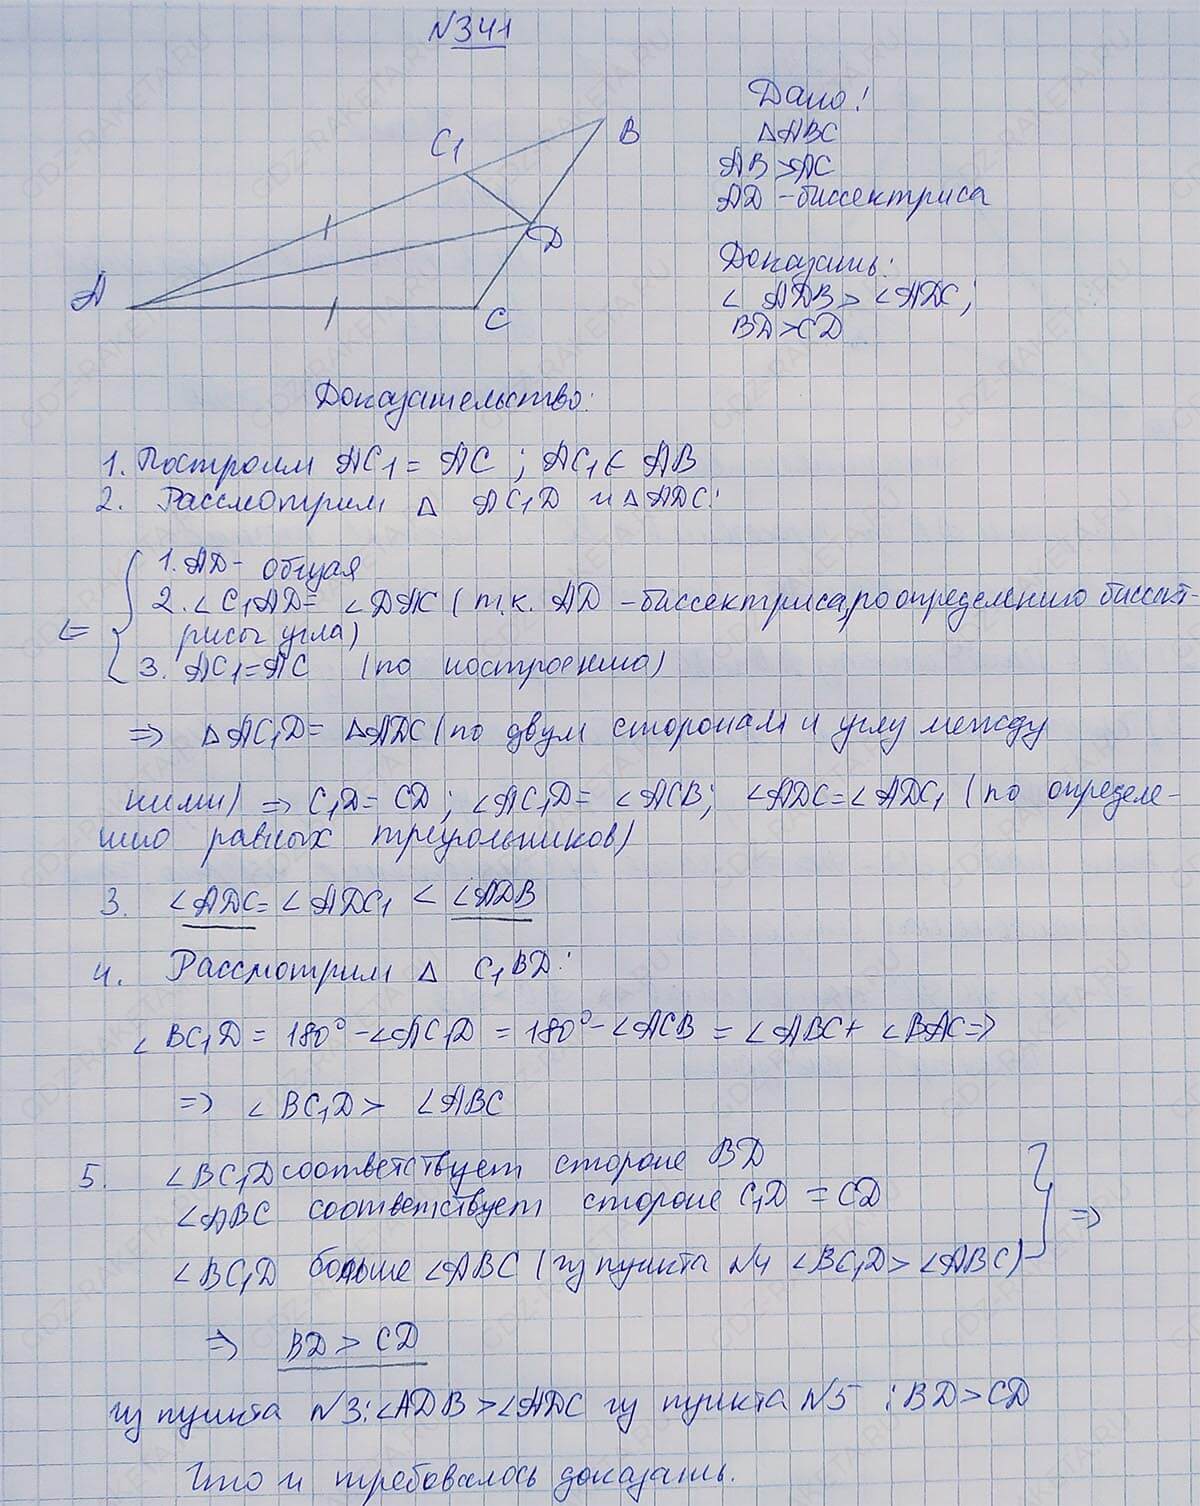 №341
C₁
B
D
A
C
Дано:
△ABC
AB > AC
AD - биссектриса
Доказать:
∠ADB > ∠ADC;
BD > CD
Доказательство:
1. Построим AC₁ = AC ; AC₁ ∈ AB
2. Рассмотрим △ AC₁D и △ADC:
1. AD - общая
2. ∠C₁AD = ∠DAC (т.к. AD - биссектриса, по определению биссект-
рисы угла)
3. AC₁ = AC (по построению)
⇒ △AC₁D = △ADC (по двум сторонам и углу между
ними) ⇒ C₁D = CD ; ∠AC₁D = ∠ACB; ∠ADC = ∠ADC₁ (по определе-
нию равных треугольников)
3. ∠ADC = ∠ADC₁ < ∠ADB
4. Рассмотрим △ C₁BD:
∠BC₁D = 180° - ∠AC₁D = 180° - ∠ACB = ∠ABC + ∠BAC ⇒
⇒ ∠BC₁D > ∠ABC
5. ∠BC₁D соответствует стороне BD
∠ABC соответствует стороне C₁D = CD
∠BC₁D больше ∠ABC (из пункта №4 ∠BC₁D > ∠ABC) ⇒
⇒ BD > CD
из пункта №3: ∠ADB > ∠ADC из пункта №5 : BD > CD
Что и требовалось доказать.